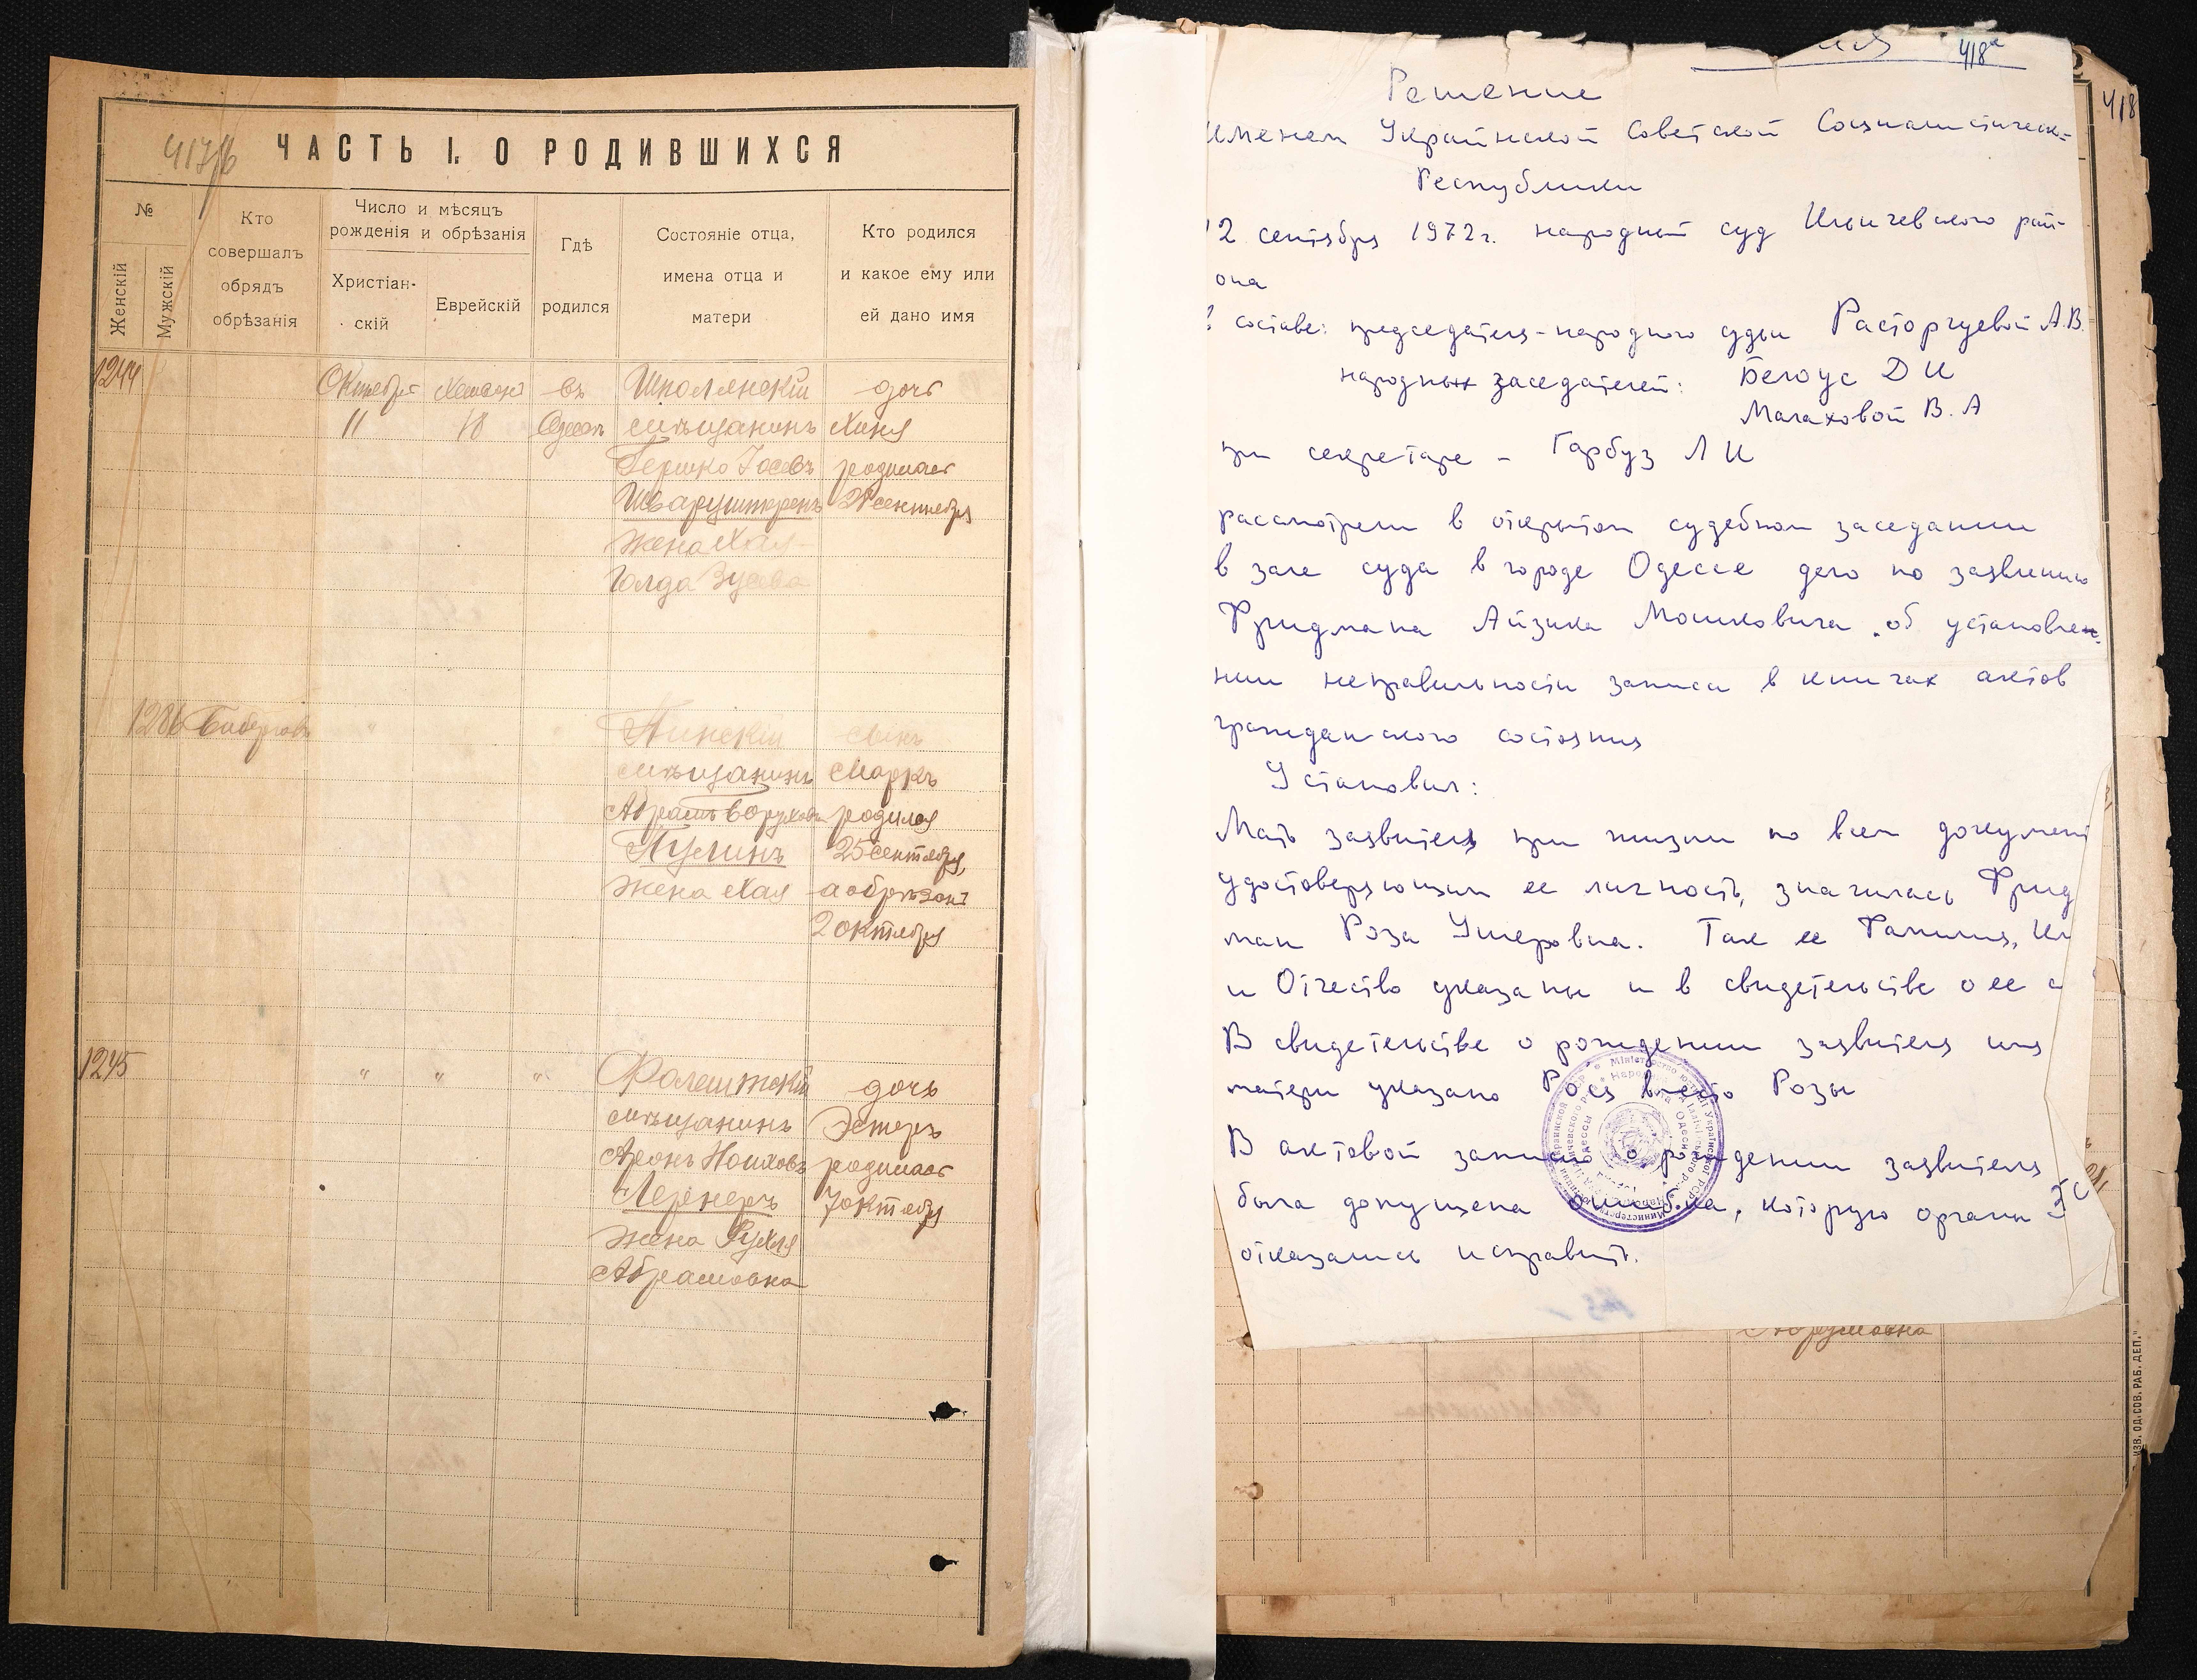 417/б
ЧАСТЬ I. О РОДИВШИХСЯ
№
Женскій
Мужскій
Кто
совершалъ
обрядъ
обрѣзанія
Число и мѣсяцъ
рожденія и обрѣзанія
Христіан-
скій
Еврейскій
Гдѣ
родился
Состояніе отца,
имена отца и
матери
Кто родился
и какое ему или
ей дано имя
1244 Октября въ Шполянскій дочь
11 18 Одессѣ мѣщанинъ Хиня
Гершко Іосевъ родилась
28 сентября
жена Хая
Голда Зусева
1286 " " Пинскій сынъ
мѣщанинъ Маркъ
Абрамъ Боруховъ родился
25 сентября,
жена Хая а обрѣзанъ
2 октября
1245 " " " Фалештскій дочь
мѣщанинъ Эстеръ
Аронъ родилась
Лернеръ 7 октября
жена Рухля
Абрамовна
418а
418
Решение
Именем Украинской Советской Социалистическ-
Республики
12 сентября 1972г. народный суд Ильичевского рай-
она
составе: председателя - народного судьи Расторгуевой А.В.
народных заседателей: Белоус Д И
Малаховой В. А
при секретаре - Гарбуз Л И
рассмотрели в открытом судебном заседании
в зале суда в городе Одессе дело по заявлению
Фридмана Айзика Мошковича об установле-
нии неправильности записи в книгах актов
гражданского состояния
Установил:
Мать заявителя при жизни по всем документ
удостоверяющим ее личность, значилась Фрид
ман Роза Ушеровна. Так ее Фамилия, Им
и Отчество указаны и в свидетельстве о ее с
В свидетельстве о рождении заявителя имя
матери указано Рося вместо Розы
В актовой записи о рождении заявителя
была допущена ошибка, которую органы
отказались исправить.
Абрамовна
ИЗВ. ОД. СОВ. РАБ. ДЕП."